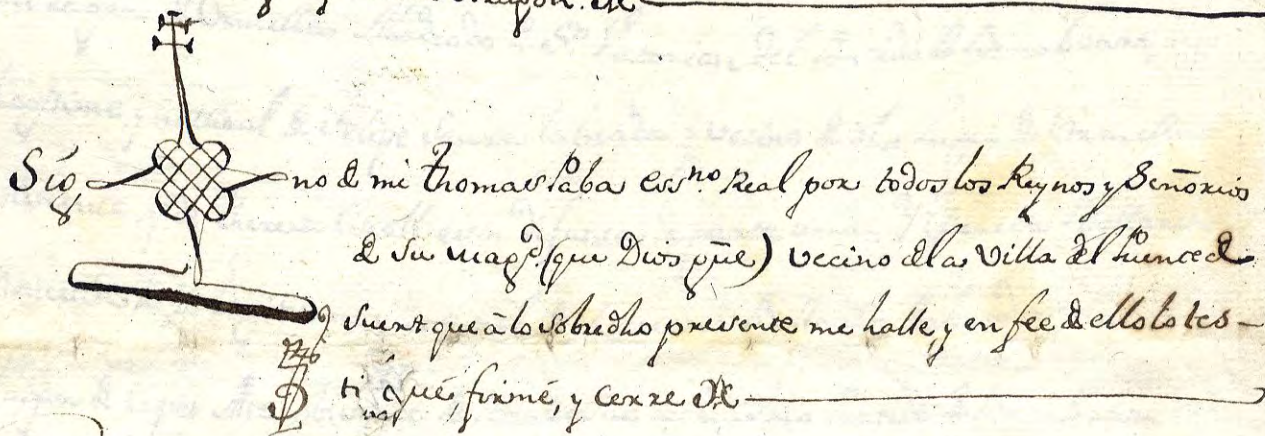 Sig no de mi Thomas Paba ess.no Real por todos los Reynos y Señorios
de su mag.d (que Dios gũe) vecino de la Villa del Puente de
suert que â lo sobredho presente me halle, y en fee de ello lo tes-
ti qué, firmé, y cerre